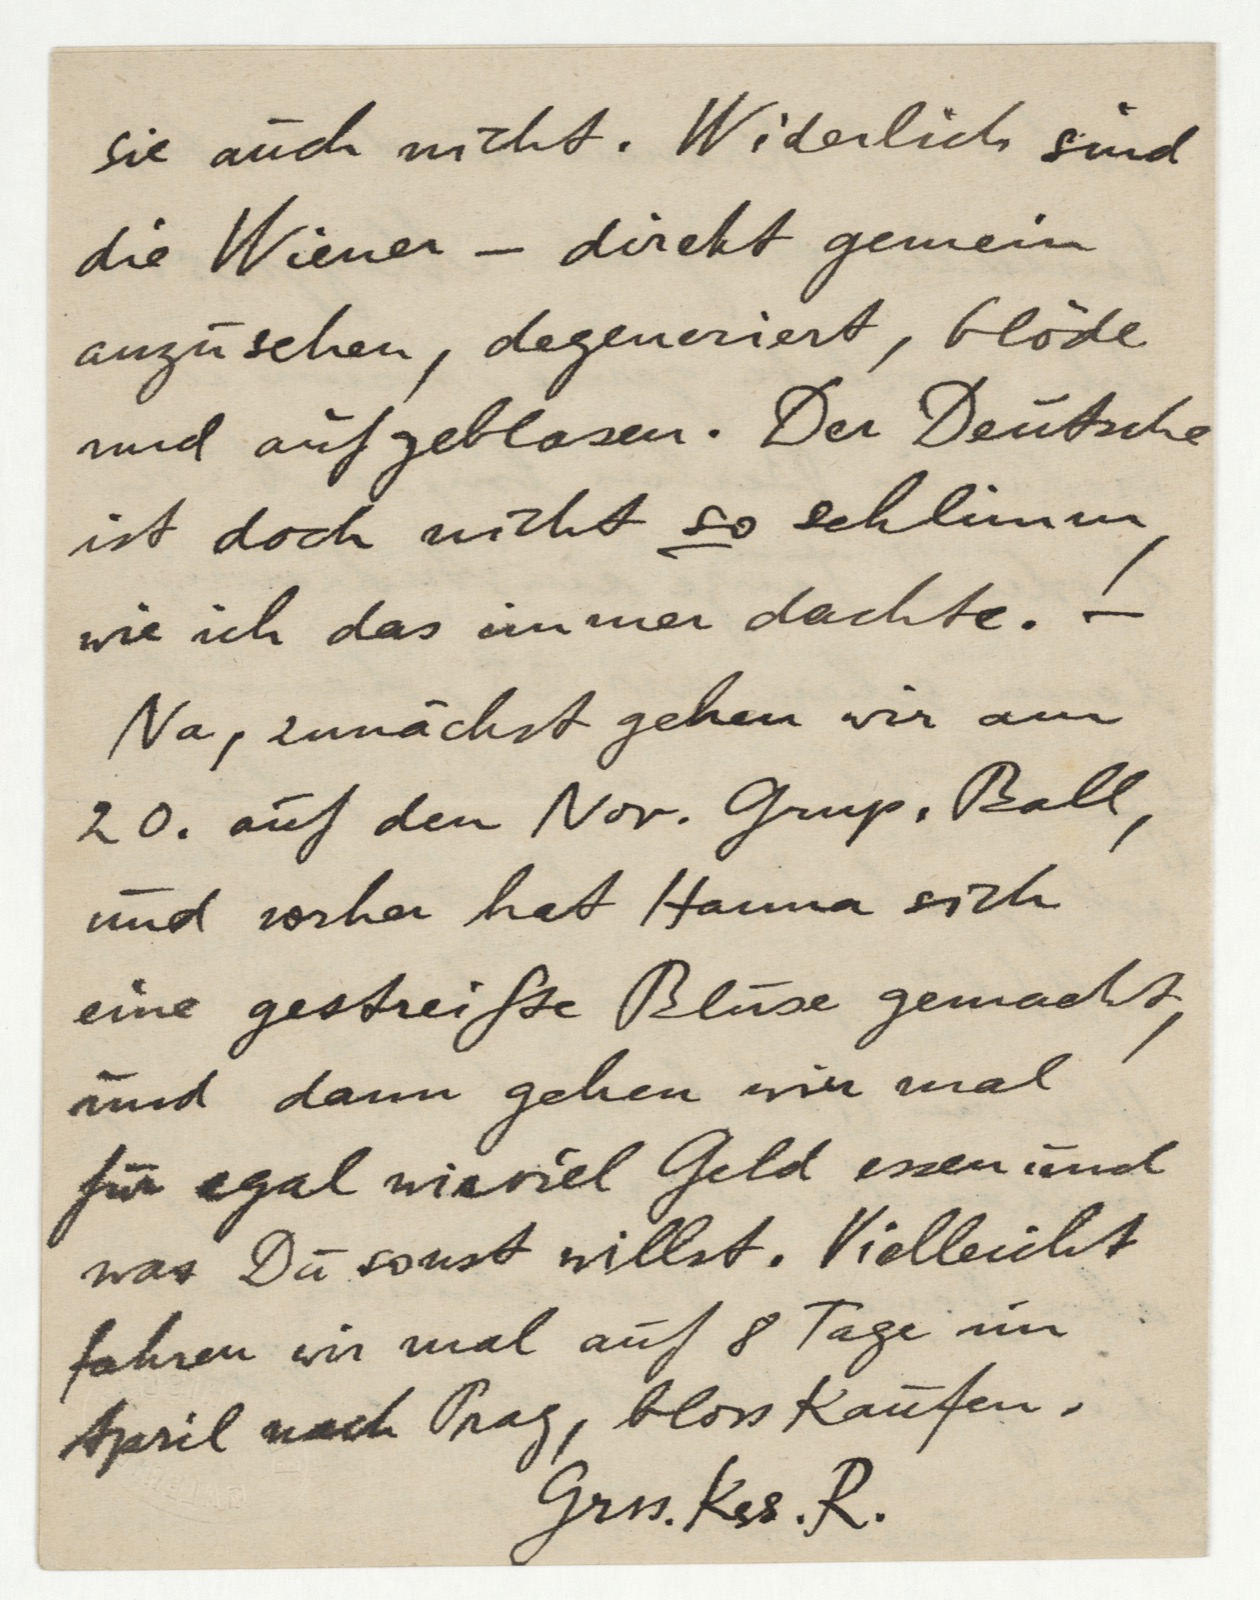 sie auch nicht. Widerlich sind
die Wiener – direkt gemein
anzusehen, degeneriert, blöde
und aufgeblasen. Der Deutsche
ist doch nicht so schlimm,
wie ich das immer dachte. –
Na, zunächst gehen wir am
20. auf den Nov. Grup. Ball,
und vorher hat Hanna sich
eine gestreifte Bluse gemacht,
und dann gehen wir mal
für egal wieviel Geld essen und
was Du sonst willst. Vielleicht
fahren wir mal auf 8 Tage im
April nach Prag, bloss Kaufen.
Grss. Kss. R.